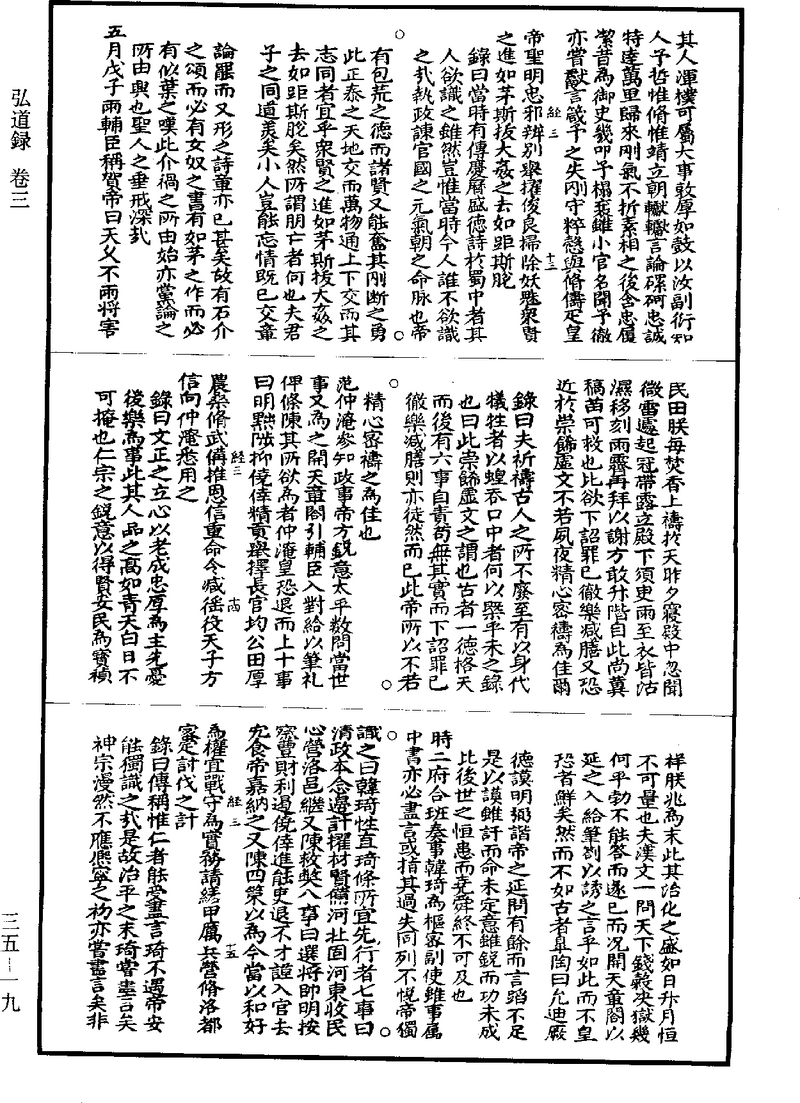 弘道録 卷三
三五—一九
其人渾樸可屬大事敦厚如鼓以汝副衍知
人予哲惟脩惟靖立朝轥轥言論磥砢忠誠
特達萬里歸來剛氣不折素相之後含忠履
潔昔為御史幾叩予榻襄雖小官名聞予徹
亦嘗獻言箴予之失剛守粹慤與脩儔疋皇
帝聖明忠邪辨別舉擢俊良掃除妖魃衆賢
之進如茅斯拔大姦之去如距斯脫
經三 十三
錄曰當時有傳慶曆盛德詩於蜀中者其
人欲識之雖然豈惟當時今人誰不欲識
之㢤執政諫官國之元氣朝之命脉也帝
有包荒之德而諸賢又能奮其剛断之勇
此正泰之天地交而萬物通上下交而其
志同者宜乎衆賢之進如茅斯拔大姦之
去如距斯脫矣然所謂朋亡者何也夫君
子之同道羙矣小人豈能忘情既已交章
論罷而又形之詩章亦已甚矣故有石介
之頌而必有女奴之書有如茅之作而必
有似葉之嘆此介禍之所由始亦黨論之
所由興也聖人之垂戒深㢤
五月戊子雨輔臣稱賀帝曰天乆不雨将害
民田朕每焚香上禱於天昨夕寢殿中忽聞
微雷遽起冠帶露立殿下須臾雨至衣皆沾
濕移刻雨霽再拜以謝方敢升階自此尚冀
稿苗可救也比欲下詔罪已徹樂减膳又恐
近於崇飾虛文不若夙夜精心密禱為佳爾
錄曰夫祈禱古人之所不廢至有以身代
犧牲者以蝗吞口中者何以槩乎未之錄
也曰此崇飾虛文之謂也古者一德格天
而後有六事自責茍無其實而下詔罪已
徹樂减膳則亦徒然而已此帝所以不若
精心密禱之為佳也
范仲淹參知政事帝方銳意太平數問當世
事又為之開天章閣引輔臣入對給以筆札
俾條陳其所欲為者仲淹皇恐退而上十事
曰明黜陟抑僥倖精貢舉擇長官均公田厚
農桑脩武備推恩信重命令减徭役天子方
信向仲淹悉用之
經三 十四
錄曰文正之立心以老成忠厚為主先憂
後樂為事此其人品之高如青天白日不
可掩也仁宗之銳意以得賢安民為寳禎
祥朕兆為末此其治化之盛如日升月恒
不可量也夫漢文一問天下錢穀决獄幾
何平勃不能答而遂已而况開天章閣以
延之入給筆劄以誘之言乎如此而不皇
恐者鮮矣然而不如古者臯陶曰允迪厥
德謨明弼諧帝之延問有餘而言蹈不足
是以謨雖訏而命未定意雖銳而功未成
此後世之恒患而堯舜終不可及也
時二府合班奏事韓琦為樞密副使雖事属
中書亦必盡言或指其過失同列不悅帝獨
識之曰韓琦性直琦條所宜先行者七事曰
清政本念邊計擢材賢備河北固河東收民
心營洛邑繼又陳救獘八事曰選将帥明按
察豐財利遏僥倖進能吏退不才謹入官去
冗食帝嘉納之又陳四策以為今當以和好
為權宜戰守為實務請繕甲厲兵營脩洛都
密定討伐之計
經三 十五
錄曰傳稱惟仁者能受盡言琦不遇帝安
能獨識之㢤是故治平之末琦嘗盡言矣
神宗漫然不應熙寧之初亦嘗盡言矣非